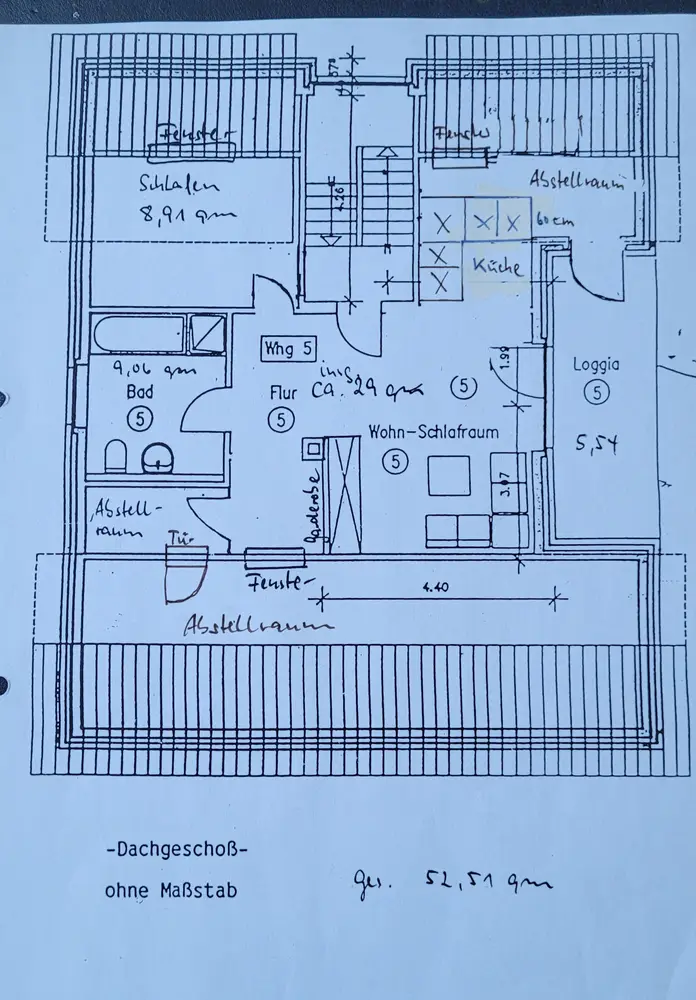 Fenster
Fenster
Schlafen
8,91 qm
Abstellraum
60 cm
4.26
X X X
X
X
Küche
Whg 5
1.99
9,06 qm
Bad
5
Flur
5
insg.
ca. 29 qm
5
Loggia
5
5,54
Wohn-Schlafraum
5
3.07
Garderobe
Abstell-
raum
Tür
Fenster
4.40
Abstellraum
-Dachgeschoß-
ohne Maßstab
ges. 52,51 qm